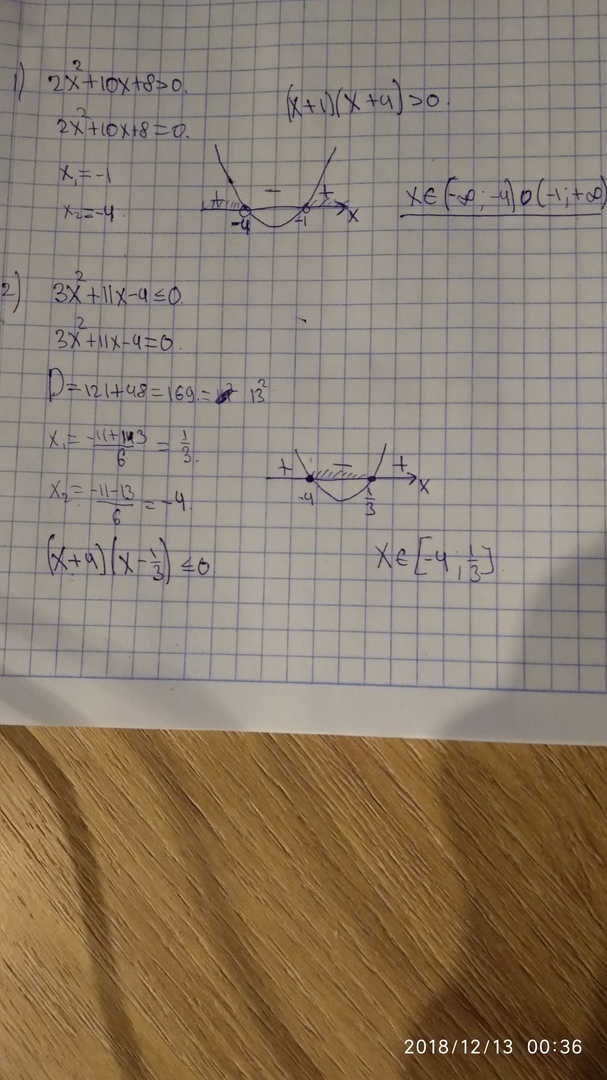 1) 2x²+10x+8>0.
2x²+10x+8=0.
(x+1)(x+4)>0.
x₁=-1
x₂=-4
+ - +
-4 -1 x
x∈(-∞;-4)∪(-1;+∞)
2) 3x²+11x-4≤0
3x²+11x-4=0.
D=121+48=169=13²
x₁=\frac{-11+13}{6}=\frac{1}{3}.
x₂=\frac{-11-13}{6}=-4
+ - +
-4 \frac{1}{3} x
(x+4)(x-\frac{1}{3})≤0
x∈[-4;\frac{1}{3}]
2018/12/13 00:36